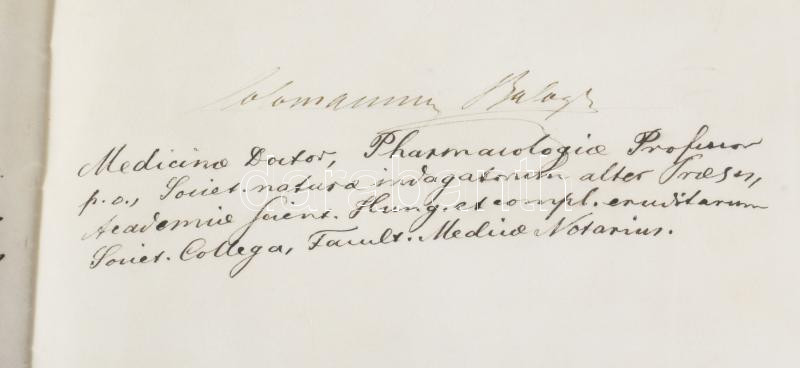 Colomannus Balogh
Medicinæ Doctor, Pharmacologiæ Professor
p. o., Societ. naturæ indagatorum alter Præses,
Academiæ Scient. Hung. et compl. eruditarum
Societ. Collega, Facult. Medicæ Notarius.
darabanth.com